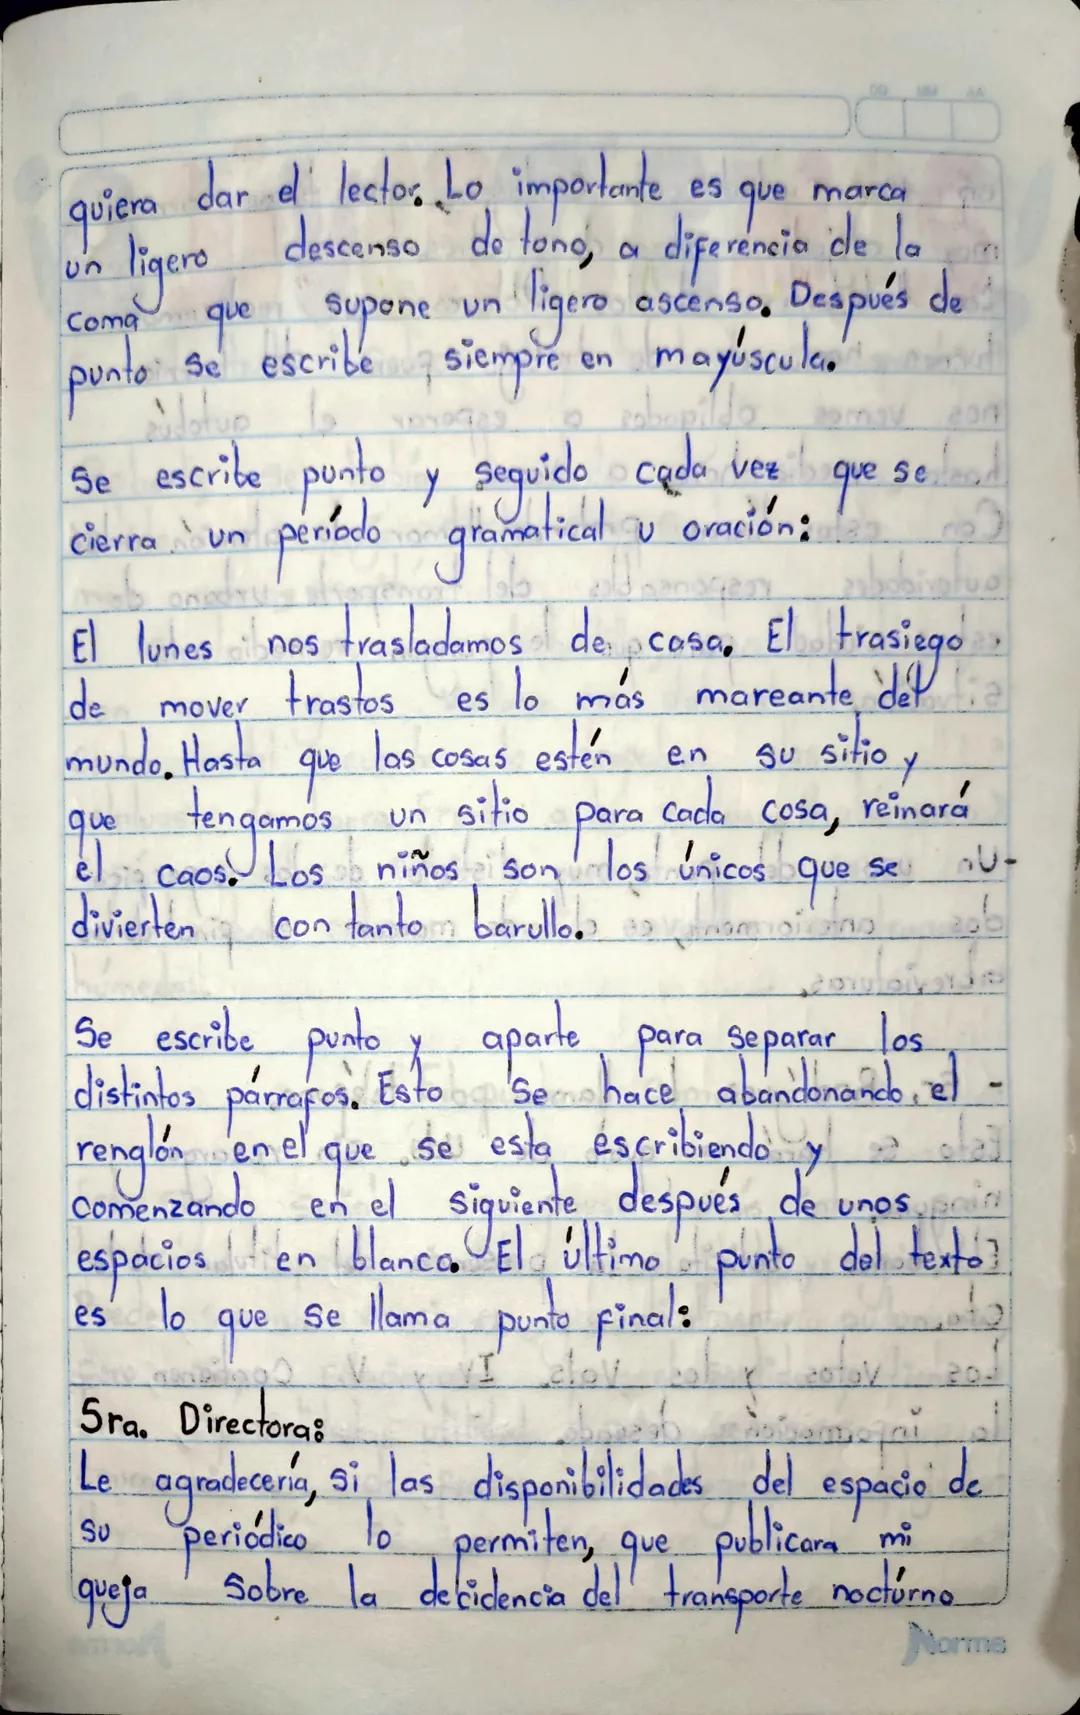 quiera dar el lector. Lo importante es que marca
un ligero descenso de tono, a diferencia de la
coma que supone un ligero ascenso. Después de
punto se escribe siempre en mayúscula.
Se escribe punto y seguido cada vez que se
cierra un período gramatical u oración:
El lunes nos trasladamos de casa. El trasiego
de mover trastos es lo más mareante del
mundo. Hasta que las cosas estén en su sitio y
que tengamos un sitio para cada cosa, reinará
el caos. Los niños son los únicos que se
divierten con tanto barullo.
Se escribe punto y aparte para separar los
distintos párrafos. Esto se hace abandonando el
renglón en el que se esta escribiendo y
comenzando en el siguiente después de unos
espacios en blanco. El último punto del texto
es lo que se llama punto final:
Sra. Directora:
Le agradecería, si las disponibilidades del espacio de
su periódico lo permiten, que publicara mi
queja sobre la deficidencia del transporte noctúrno
Norma